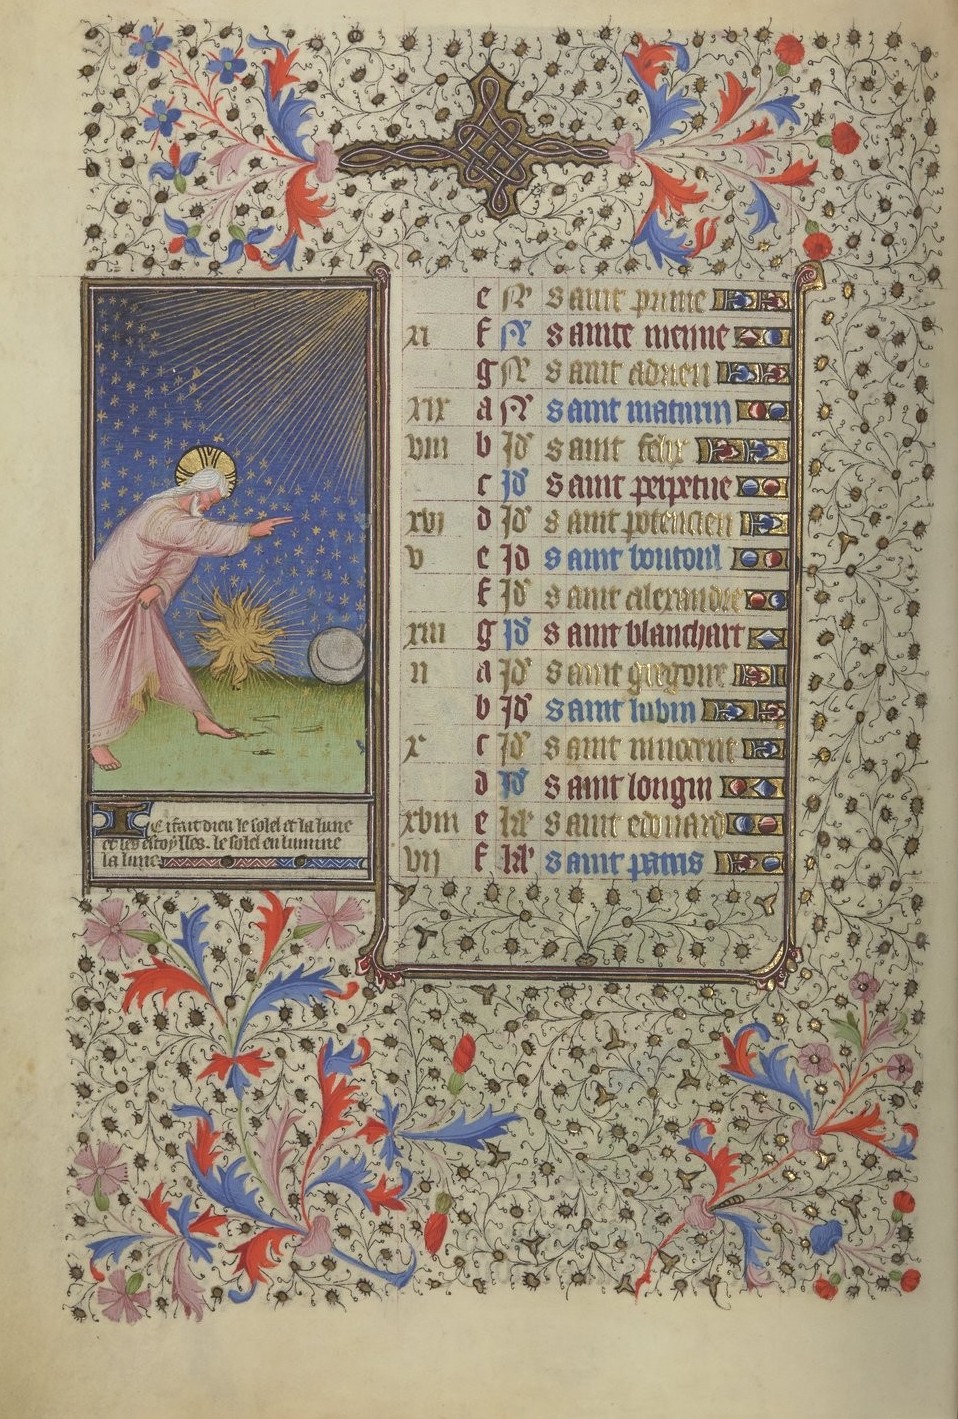 e N Saint prime
xi f N Sainte menne
g N Saint adrien
xix a N Saint maturin
viii b Id Saint felix
c Id Saint perpetue
xvi d Id Saint potencien
v e Id Saint
f Id Saint alexandre
xiii g Id Saint blanchart
ii a Id Saint gregoire
b Id Saint lubin
x c Id Saint innocent
d Id Saint longin
xviii e kl Saint edouard
vii f kl Saint patris
Ici fait dieu le soleil et la lune
et les estoylles. le soleil enlumine
la lune